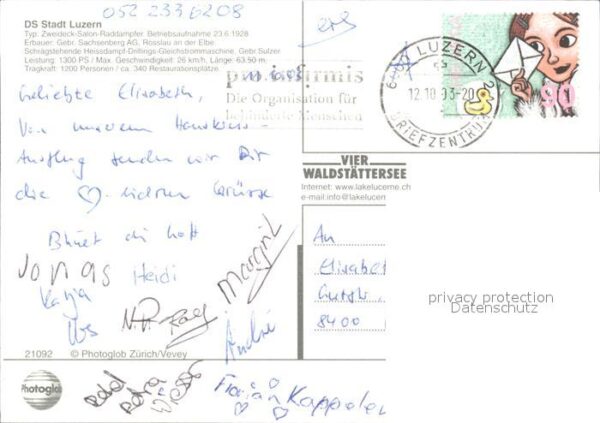 052 233 6208
DS Stadt Luzern
Typ. Zweideck-Salon-Raddampfer. Betriebsaufnahme 23.6.1928
Erbauer: Gebr. Sachsenberg AG. Rosslau an der Elbe
Schrägstehende Heissdampf-Drillings-Gleichstrommaschine, Gebr. Sulzer
Leistung: 1300 PS / Max. Geschwindigkeit: 26 km/h, Länge: 63.50 m.
Tragkraft: 1200 Personen / ca. 340 Restaurationsplätze.
pro infirmis
Die Organisation für
behinderte Menschen
LUZERN
12.10.03-20
BRIEFZENTRUM
90
Geliebte Elisabeth,
Von unserem
Ausflug senden wir Dir
die ♡-lichen Grüsse
Bhüet di Gott
Jonas Heidi Margrit
Katja
Urs N.P. André
Florian Kappeler
VIER
WALDSTÄTTERSEE
Internet: www.lakelucerne.ch
e-mail:info@lakelucerne
An
Elisabet
8400
privacy protection
Datenschutz
21092 © Photoglob Zürich/Vevey
Photoglob